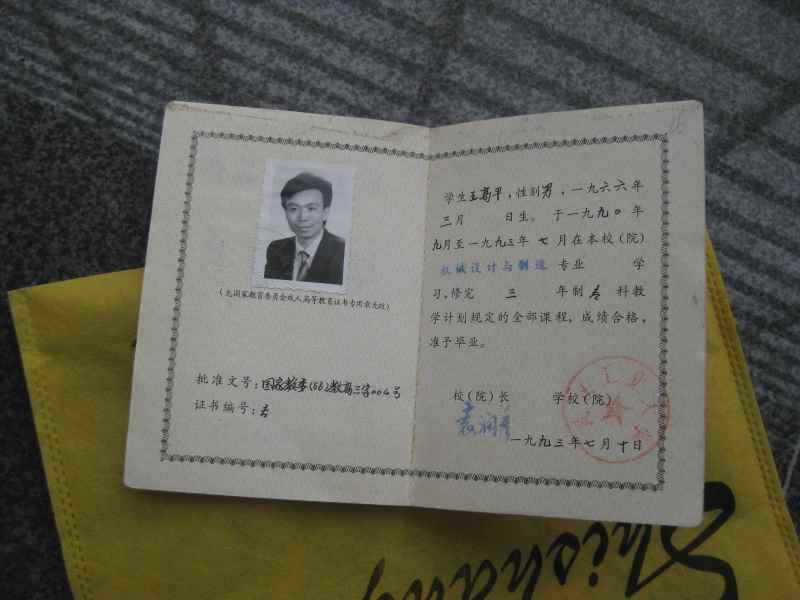 （无国家教育委员会成人高等教育证书专用章无效）
批准文号：国家教委(86)教高三字004号
证书编号：
学生王高平，性别男，一九六六年
三月　　日生。于一九九〇年
九月至一九九三年七月在本校（院）
机械设计与制造专业　　学
习，修完　三　年制专科教
学计划规定的全部课程，成绩合格，
准予毕业。
校（院）长　　学校（院）
一九九三年七月十日
Shishang